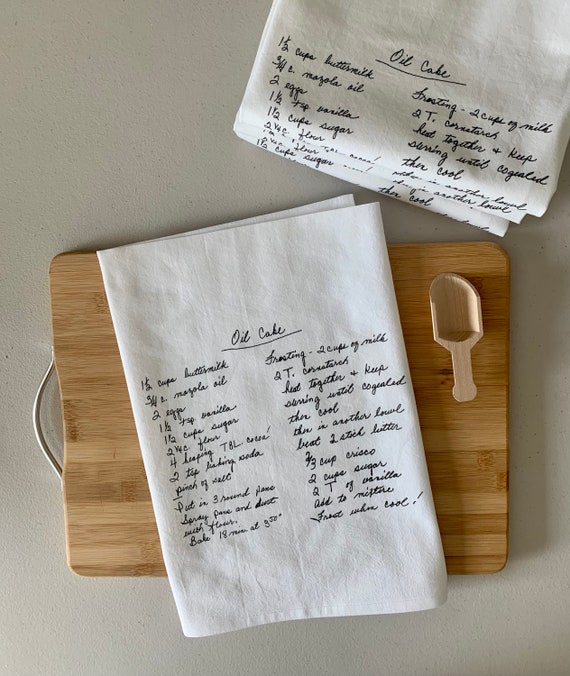 Oil Cake
1½ cups buttermilk
¾ c. mazola oil
2 eggs
1½ tsp vanilla
1½ cups sugar
2¼ c. flour
1½ cups sugar
Frosting - 2 cups of milk
2 T. cornstarch
heat together & keep
stirring until cogealed
ther cool
ther cool
Oil Cake
1½ cups buttermilk
¾ c. mazola oil
2 eggs
1½ tsp vanilla
1½ cups sugar
2¼ c. flour
4 heaping TBL. cocoa!
2 tsp baking soda
pinch of salt
Put in 3 round pans
Spray pans and dust
with flour.
Bake 18 min at 350°
Frosting - 2 cups of milk
2 T. cornstarch
heat together & keep
stirring until cogealed
ther cool
ther in another bowl
beat 2 stick butter
⅔ cup crisco
2 cups sugar
2 T of vanilla
add to mixture
Frost when cool!